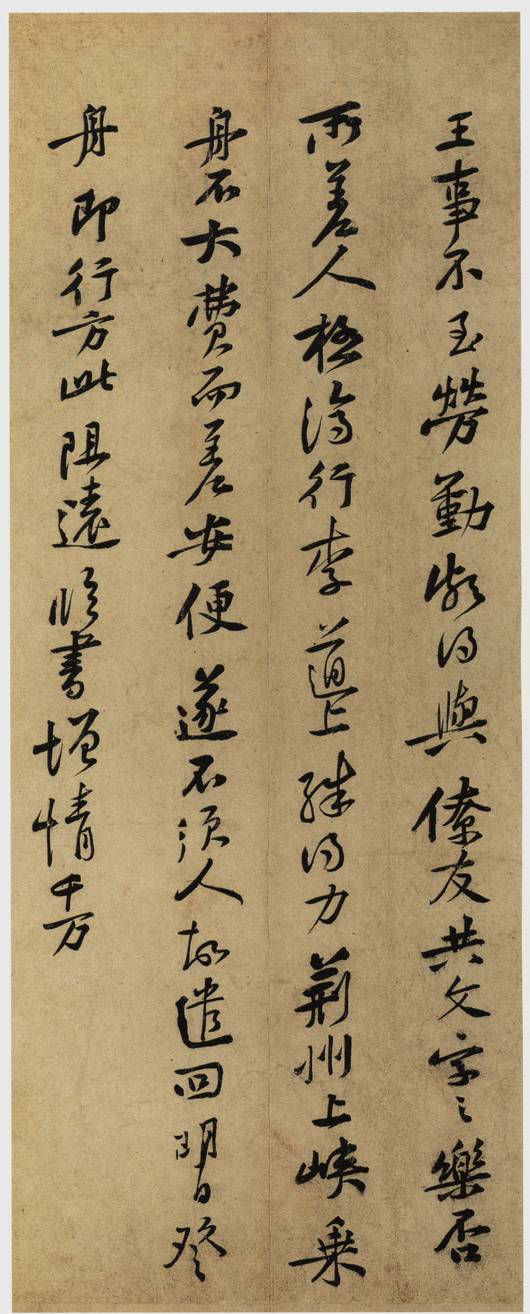 王事不至勞勤頗得與僚友共文字之樂否
所差人極濟行李道上殊得力荆州上峽乘
舟不大費而差安便遂不須人故遣回明日登
舟即行方此阻遠臨書增情千万